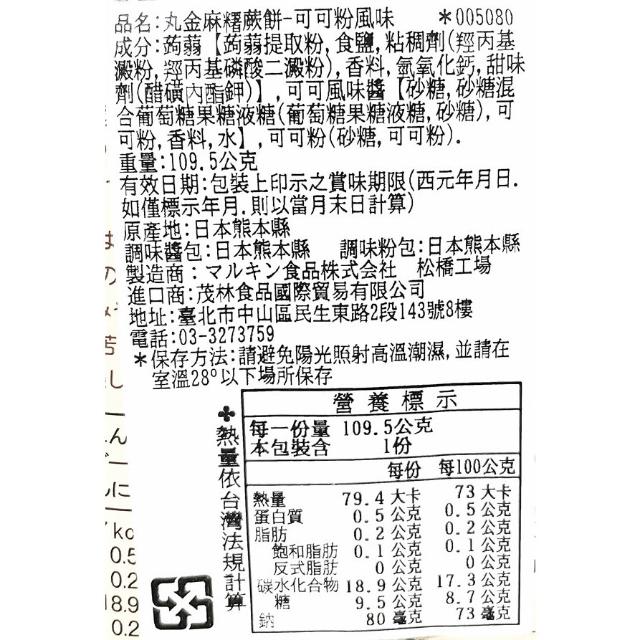 品名:丸金麻糬蕨餅-可可粉風味 *005080
成分:蒟蒻【蒟蒻提取粉,食鹽,粘稠劑(羥丙基
澱粉,羥丙基磷酸二澱粉),香料,氫氧化鈣,甜味
劑(醋磺內酯鉀)】,可可風味醬【砂糖,砂糖混
合葡萄糖果糖液糖(葡萄糖果糖液糖,砂糖),可
可粉,香料,水】,可可粉(砂糖,可可粉).
重量:109.5公克
有效日期:包裝上印示之賞味期限(西元年月日.
如僅標示年月.則以當月末日計算)
原產地:日本熊本縣
調味醬包:日本熊本縣 調味粉包:日本熊本縣
製造商:マルキン食品株式会社 松橋工場
進口商:茂林食品國際貿易有限公司
地址:臺北市中山區民生東路2段143號8樓
電話:03-3273759
*保存方法:請避免陽光照射高溫潮濕,並請在
室溫28°以下場所保存
營養標示
每一份量 109.5公克
本包裝含 1份
每份 每100公克
熱量 79.4大卡 73大卡
蛋白質 0.5公克 0.5公克
脂肪 0.2公克 0.2公克
飽和脂肪 0.1公克 0.1公克
反式脂肪 0公克 0公克
碳水化合物 18.9公克 17.3公克
糖 9.5公克 8.7公克
鈉 80毫克 73毫克
✤熱量依台灣法規計算
は
の
苦
し
ん
ー
に
kc
0.5
0.2
18.9
0.2